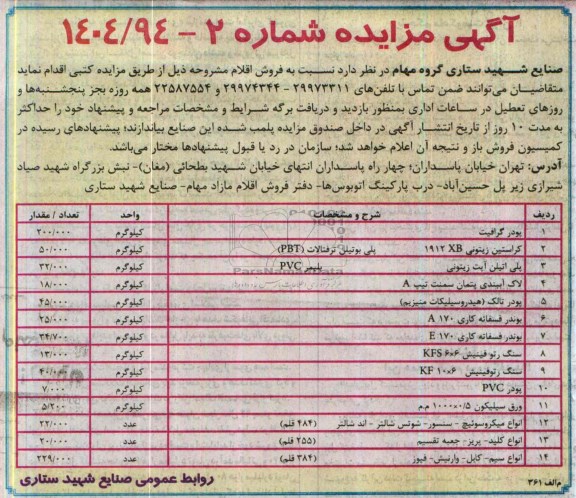 آگهی مزایده شماره ۲ - ۱۴۰۴/۹۴
صنایع شهید ستاری گروه مهام در نظر دارد نسبت به فروش اقلام مشروحه ذیل از طریق مزایده کتبی اقدام نماید
متقاضیان می‌توانند ضمن تماس با تلفن‌های ۲۹۹۷۳۳۱۱ - ۲۹۹۷۴۳۴۴ و ۲۲۵۸۷۵۵۴ همه روزه بجز پنجشنبه‌ها و
روزهای تعطیل در ساعات اداری بمنظور بازدید و دریافت برگه شرایط و مشخصات مراجعه و پیشنهاد خود را حداکثر
به مدت ۱۰ روز از تاریخ انتشار آگهی در داخل صندوق مزایده پلمب شده این صنایع بیاندازند؛ پیشنهادهای رسیده در
کمیسیون فروش باز و نتیجه آن اعلام خواهد شد؛ سازمان در رد یا قبول پیشنهادها مختار می‌باشد.
آدرس: تهران خیابان پاسداران؛ چهار راه پاسداران انتهای خیابان شهید بطحائی (مغان)- نبش بزرگراه شهید صیاد
شیرازی زیر پل حسین‌آباد- درب پارکینگ اتوبوس‌ها- دفتر فروش اقلام مازاد مهام- صنایع شهید ستاری
ردیف شرح و مشخصات واحد تعداد / مقدار
۱ پودر گرافیت کیلوگرم ۲۰۰/۰۰۰
۲ کراستین زیتونی ۱۹۱۲ XB پلی بوتیلن ترفتالات (PBT) کیلوگرم ۵۰/۰۰۰
۳ پلی اتیلن آیت زیتونی پلیمر PVC کیلوگرم ۳۲/۰۰۰
۴ لاک آببندی پتمان سمنت تیپ A کیلوگرم ۱۸/۰۰۰
۵ پودر تالک (هیدروسیلیکات منیزیم) کیلوگرم ۴۵/۰۰۰
۶ پوندر فسفاته کاری ۱۷۰ A کیلوگرم ۲۵/۰۰۰
۷ پوندر فسفاته کاری ۱۷۰ E کیلوگرم ۳۴/۷۰۰
۸ سنگ رتوفینیش ۶×۶ KFS کیلوگرم ۱۳/۰۰۰
۹ سنگ رتوفینیش ۶×۱۰ KF کیلوگرم ۴۰/۰۰۰
۱۰ پودر PVC کیلوگرم ۷/۰۰۰
۱۱ ورق سیلیکون ۰/۵×۱۰۰۰ م.م کیلوگرم ۵/۲۰۰
۱۲ انواع میکروسوئیچ - سنسور- شوتس شالتر - اند شالتر (۴۸۴ قلم) عدد ۲۲/۰۰۰
۱۳ انواع کلید- پریز- جعبه تقسیم (۲۵۵ قلم) عدد ۲۰/۰۰۰
۱۴ انواع سیم- کابل- وارنیش- فیوز (۳۸۴ قلم) عدد ۲۲۹/۰۰۰
م/الف ۳۶۱ روابط عمومی صنایع شهید ستاری